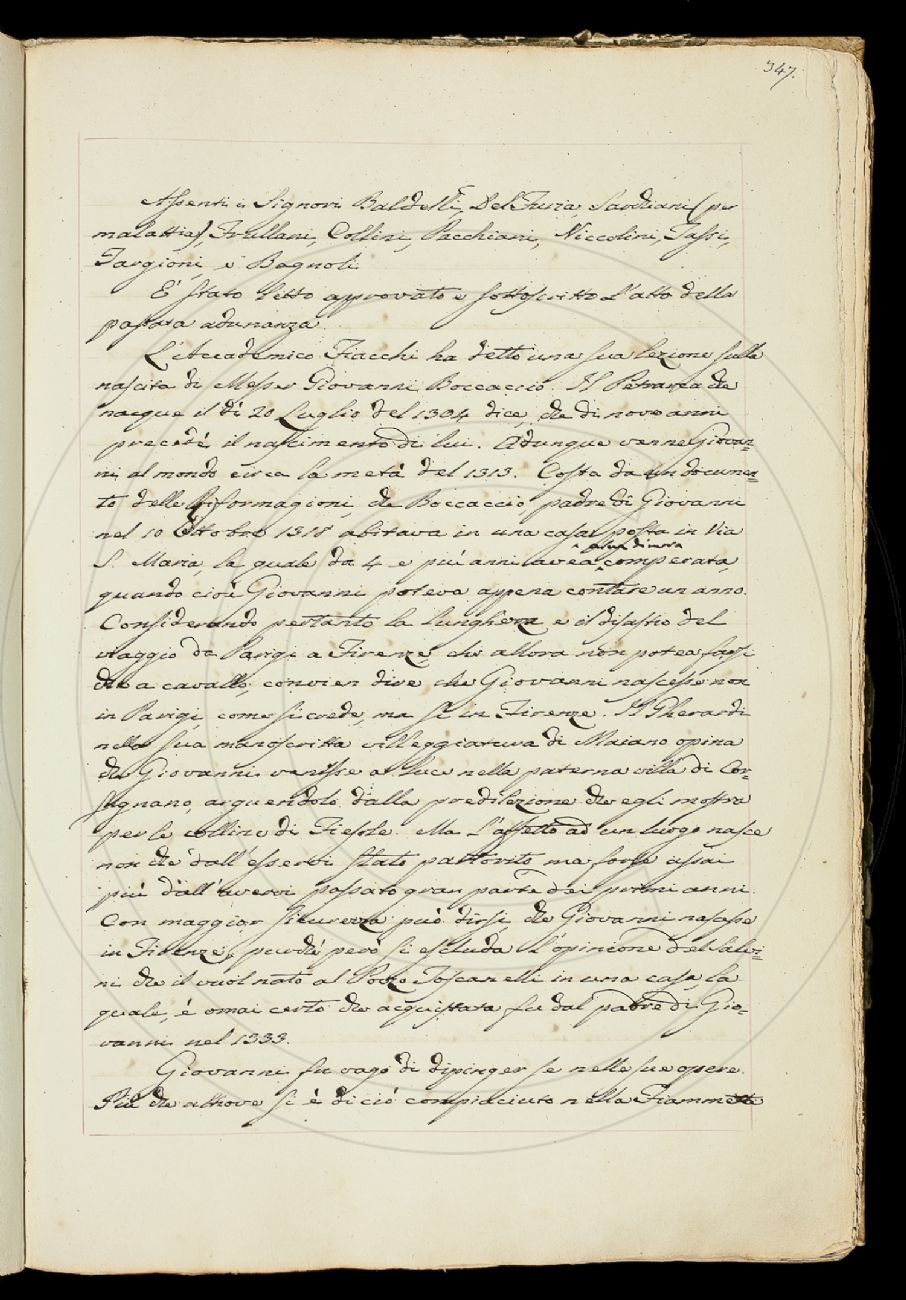 347.
Assenti i Signori Baldelli, Del Furia, Sarchiani (per
malattia), Frullani, Collini, Pacchiani, Niccolini, Tassi,
Targioni, e Bagnoli.
E' stato letto approvato e sottoscritto l'atto della
passata adunanza.
L'Accademico Fiacchi ha detto una sua lezione sulla
nascita di Messer Giovanni Boccaccio. Il Petrarca che
nacque il dì 20 Luglio del 1304 dice, che di nove anni
precedè il nascimento di lui. Adunque venne Giovan=
ni al mondo circa la metà del 1313. Costa da un documen=
to delle Riformagioni, che Boccaccio, padre di Giovanni
nel 10 Ottobre 1318 abitava in una casa posta in Via
S. Maria, la quale da 4 e più anni avea comperata,
quando cioè Giovanni poteva appena contare un anno.
Considerando pertanto la lunghezza e il disastro del
viaggio da Parigi a Firenze, che allora non potea farsi
che a cavallo, convien dire che Giovanni nascesse non
in Parigi, come si crede, ma sì in Firenze. Il Gherardi
nella sua manoscritta villeggiatura di Maiano opina
che Giovanni venisse a luce nella paterna villa di Cor=
bignano, arguendolo dalla predilezione che egli mostra
per le colline di Fiesole. Ma l'affetto ad un luogo nasce
non che dall'esservi stato partorito ma forse assai
più dall'avervi passato gran parte dei primi anni.
Con maggior sicurezza può dirsi, che Giovanni nascesse
in Firenze, purchè però si escluda l'opinione del Salvi=
ni che il vuol nato al Pozzo Toscanelli in una casa, la
quale, è omai certo che acquistata fu dal padre di Gio=
vanni nel 1333.
Giovanni fu vago di dipinger se nelle sue opere.
Più che altrove si è di ciò compiaciuto nella Fiammetta